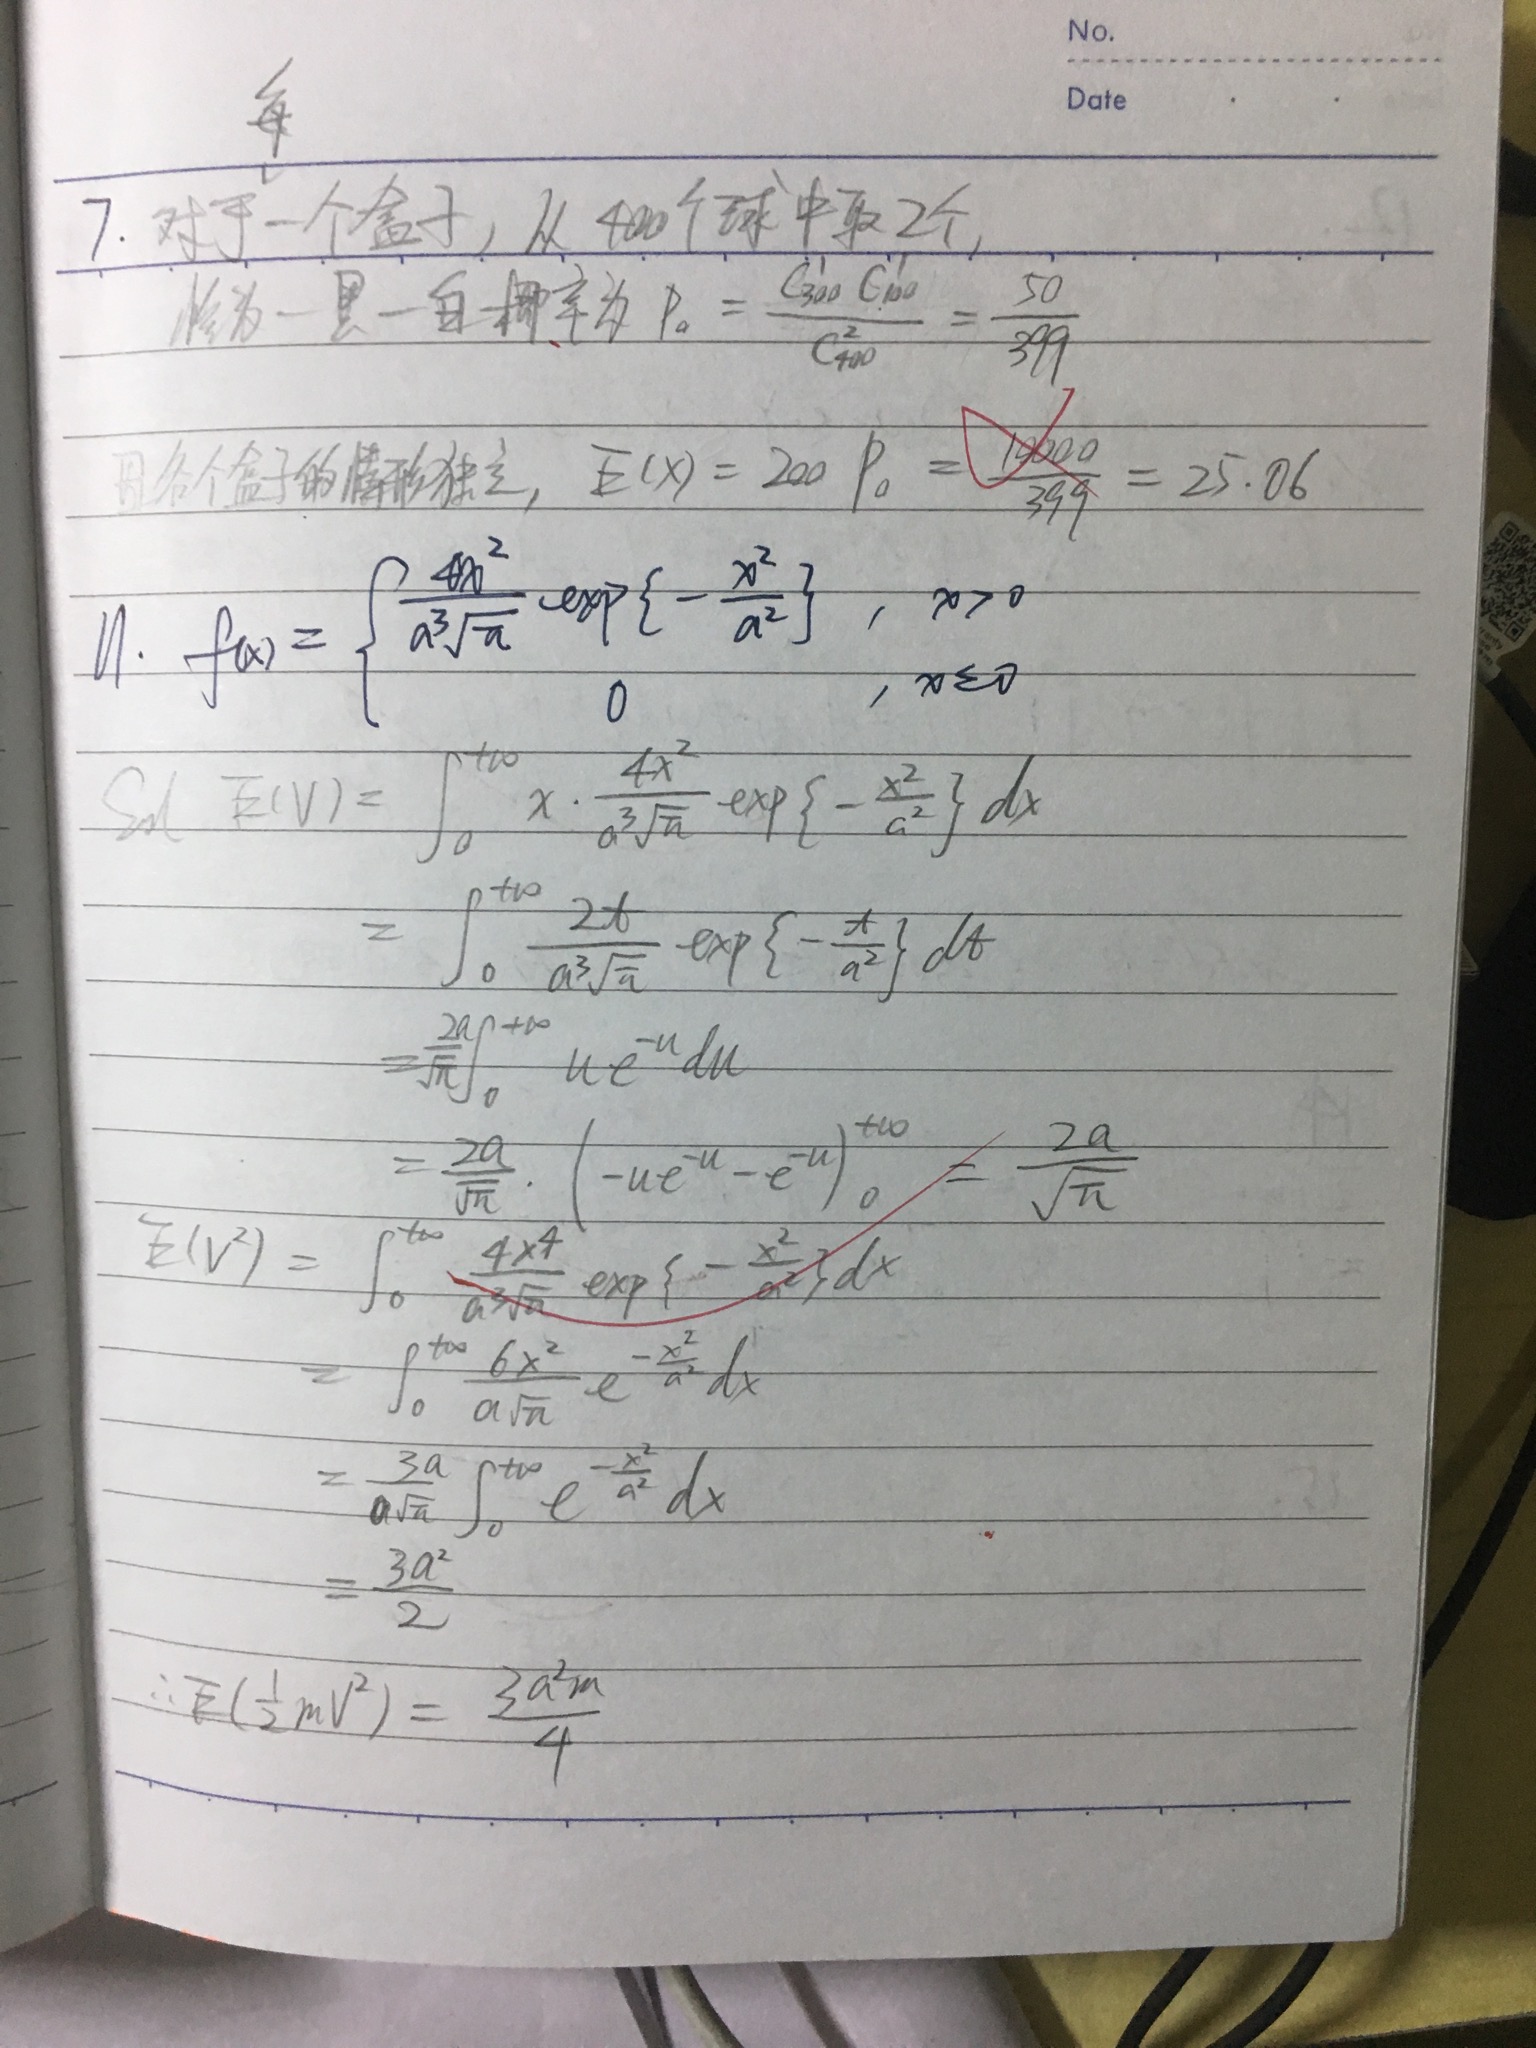 No.
Date
每
7. 对于一个盒子, 从 400个球中取2个,
恰为一黑一白概率为 P₀ = C¹₃₀₀ C¹₁₀₀ / C²₄₀₀ = 50/399
因各个盒子的情形独立, E(X) = 200 P₀ = 10000/399 = 25.06
11. f(x) = { 4x²/(a³√π) exp{-x²/a²} , x>0
0 , x≤0
Sol E(V) = ∫₀^{+∞} x · 4x²/(a³√π) exp{-x²/a²} dx
= ∫₀^{+∞} 2t/(a³√π) exp{-t/a²} dt
= 2a/√π ∫₀^{+∞} u e^{-u} du
= 2a/√π · (-ue^{-u} - e^{-u})₀^{+∞} = 2a/√π
E(V²) = ∫₀^{+∞} 4x⁴/(a³√π) exp{-x²/a²} dx
= ∫₀^{+∞} 6x²/(a√π) e^{-x²/a²} dx
= 3a/(a√π) ∫₀^{+∞} e^{-x²/a²} dx
= 3a²/2
∴ E(½mV²) = 3a²m/4